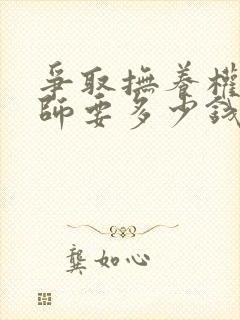 爭取撫養權
師要多少錢
龔如心